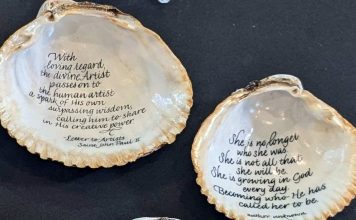 With
loving regard,
the divine Artist
passes on to
the human artist
a spark of His own
surpassing wisdom,
calling him to share
in His creative power.
-Letter to Artists
Saint John Paul II
She is no longer
who she was.
She is not all that
she will be.
She is growing in God
every day.
Becoming who He has
called her to be.
author unknown